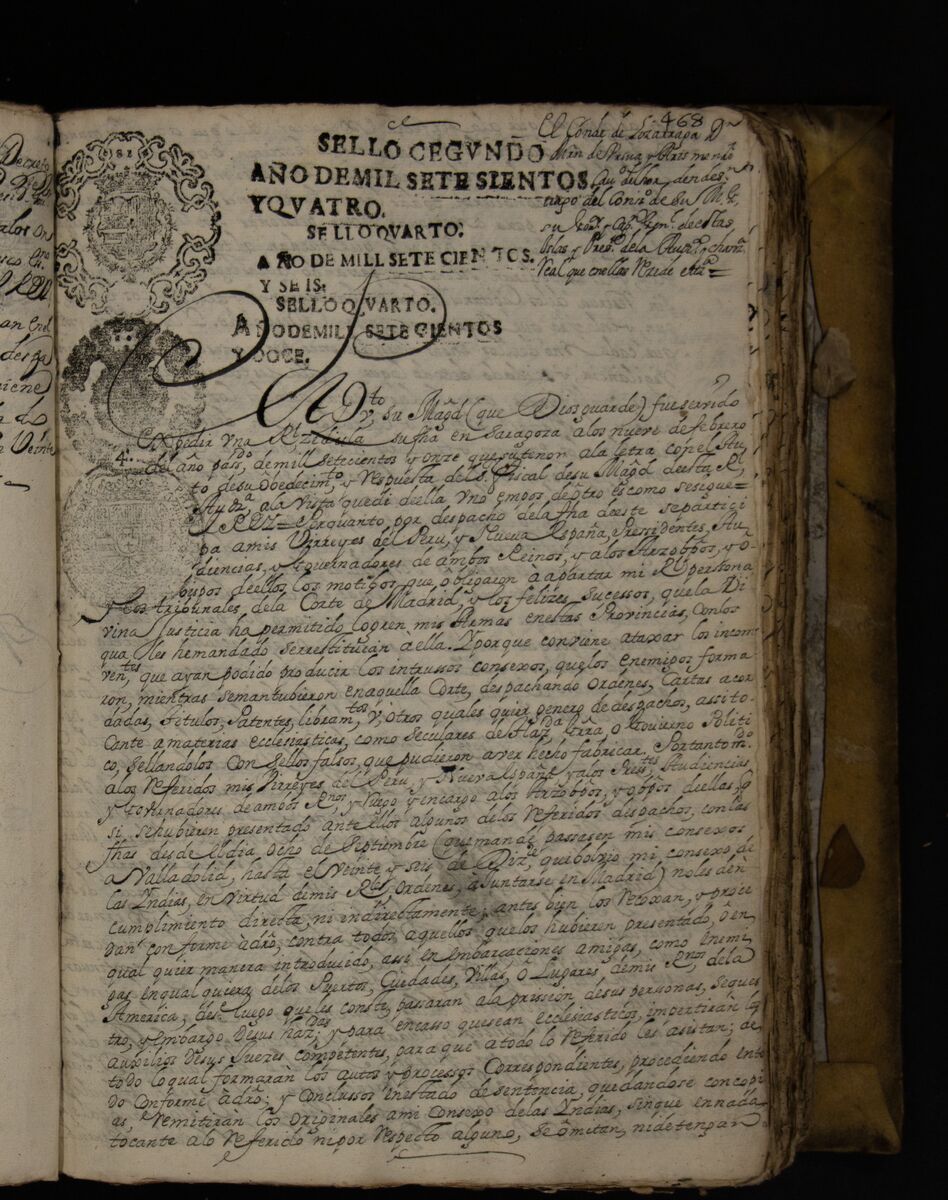 468
SELLO CEGVNDO
AÑO DE MIL SETE SIENTOS,
YQVATRO.
SELLO QVARTO:
AÑO DE MILL SETE CIENTOS.
Y SEIS.
SELLO QVARTO.
AÑO DE MILL SETE CIENTOS
Y DOCE.
El Conde de Lizarraga Dn
Min de Vrsua y Aris
tiempo del Conso de Su M. G.
su Govr y Capn Genl de estas
Islas, y Presте de la Audia y chanza
Real que en ellas Reside etta =
Dto y su Magd (que Dios guarde) fue servido
expedir vna Rl Zedula su fha en Saragoza a los nueve de febrero
del año passdo de mill setecientos y onze que su tenor a la letra con el Au
to de su Obedecimto y Respuesta del Sr Fiscal de su Magd de esta Rl
Auda a la vista que di de ella vno em pos de otro es como se sigue =
El REY = Porquanto, por despacho de la fha de este se partici
pa a mis Virreyes del Peru, y Nueva España, Presidentes, Au
diencias, y Governadores de ambos Reinos, y a los Arzobpos, y o
bispos de ellos los motibos que obligaron à apartar mi Rl persona
y los tribunales de la Corte de Madrid, y los felizes sucessos, que la Di
vina Justicia ha permitido logren mis Armas en estas Provincias, con los
qua les he mandado se rrestituian à ella. Y porque conviene ataxar los incom
ventes que ayan podido producir los intrussos consexos, que los enemigos forma
ron, mientras se mantubieron en aquella Corte, despachando ordenes, Cartas acor
dadas, Titulos, Patentes, libramtos y otros quales quier genero de despachos, assi to-
cante a materias ecclesiasticas, como seculares de Hazda Grra, o Govierno Politi
co, sellandolos con sellos falsos, que pudieron aver hecho fabricar. Portanto mdo
a los Referidos mis Virreyes del Peru, y Nueva España y a los Prestes Audiencias,
y Governadores de ambos Rnos, y ruego y encargo a los Arzobpos, y obpos de ellas, q
si se hubieren presentado ante ellos algunos de los Referidos despachos, con las
fhas desde el dia ocho de Septiembre (que mandé passasen mis consexos
a Valladolid, hasta el Veinte y seis de Dizre que bolvio mi consexo de
las Yndias, en Virtud de mis Rls Ordenes, à Juntarse en Madrid) no les dèn
cumplimiento directa, ni indirectamente; antes bien los Recoxan, y proce
dan conforme a dro, contra todos aquellos que los hubieren presentado, ò en
qual quier manera introducido, assi en embarcaciones amigas, como enemi
gas en qual quiera de los Puertos, Ciudades, Villas, o Lugares de mis Rnos de la
America; des luego que les conste passaran a la prission de sus personas, seques
tro, y embargo de sus hazdas y para en casso que sean ecclesiasticos, impertirán los
auxilios de sus Juezes competentes, para que a todo lo referido les asistan; de
todo lo qual formaràn los autos y processos correspondientes, procediendo en to
do conforme a dro; y conclussos en estado de sentencia, quedandose con copi
as, Remitiràn los originales a mi Consexo de las Yndias, sin que en nada
tocante a lo Referido ni por respecto alguno, se omitan, ni detengan